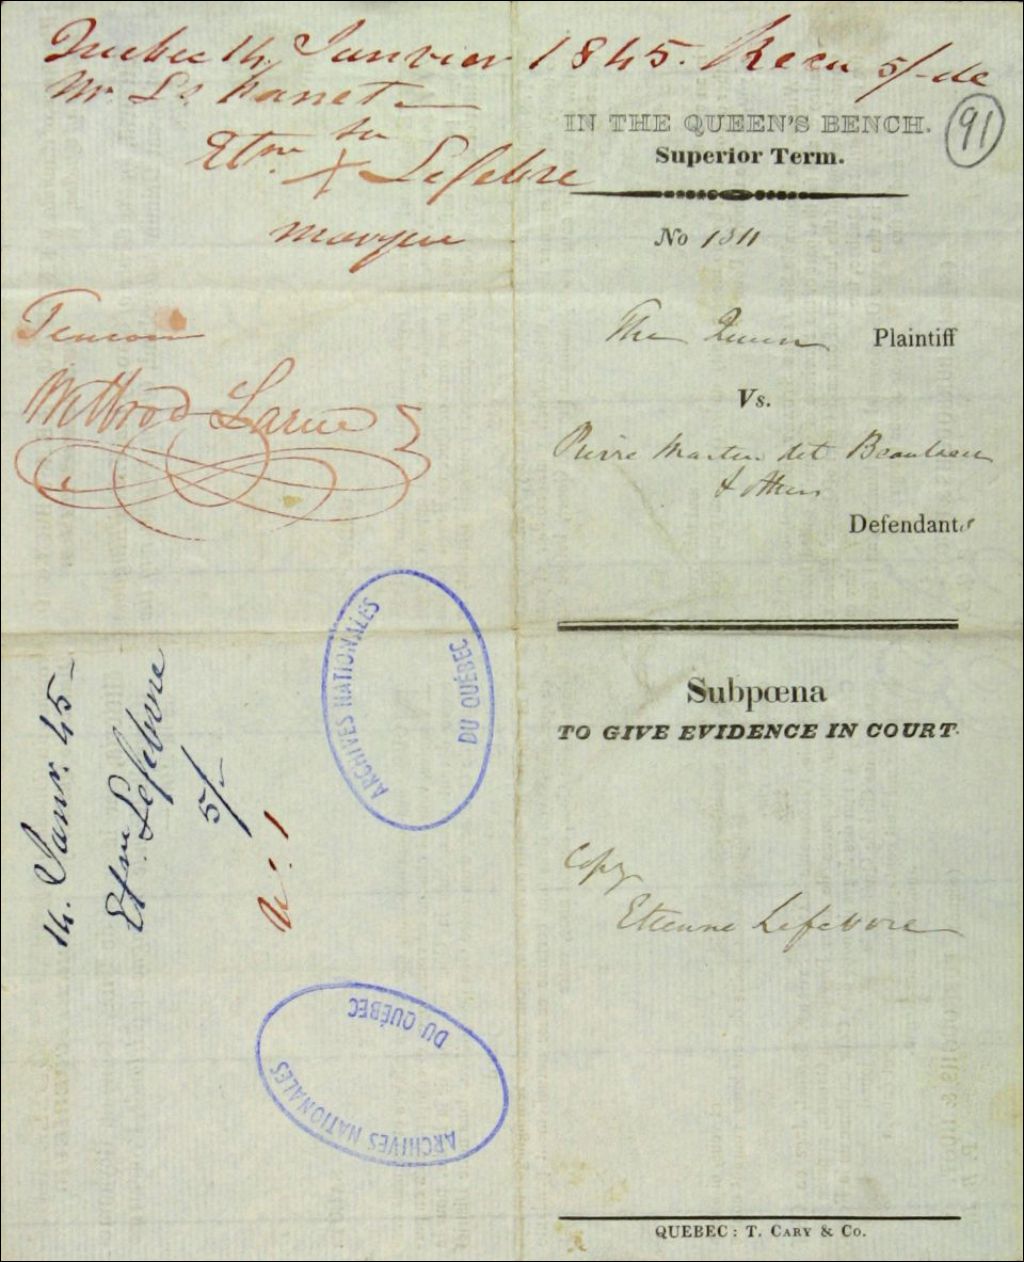 Quebec 14 Janvier 1845. Recu 5/- de
Mr. Ls
Etnne sa X Lefebvre
marque
Temoin
Larue
IN THE QUEEN'S BENCH.
Superior Term.
91
No 1311
The Queen Plaintiff
Vs.
Pierre Martin dit Beaulieu
& others
Defendants
Subpœna
TO GIVE EVIDENCE IN COURT.
Copy
Etienne Lefebvre
QUEBEC: T. CARY & Co.
14. Janr. 45-
Etne Lefebvre
5/-
No. 1
ARCHIVES NATIONALES
DU QUÉBEC
ARCHIVES NATIONALES
DU QUÉBEC